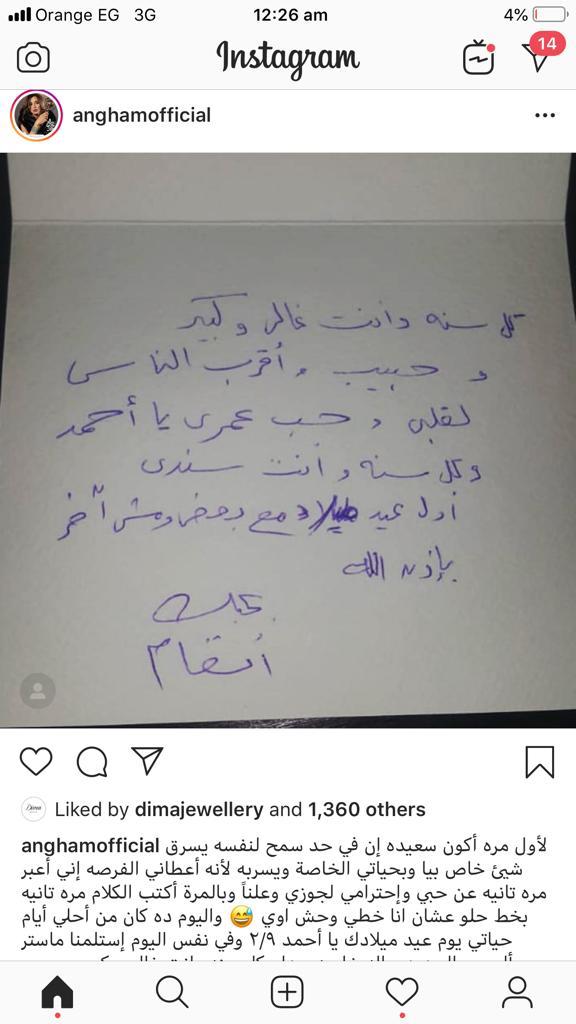 Orange EG 3G 12:26 am 4%
Instagram 14
anghamofficial
كل سنه وانت غالى وكبير
و حبيب وأقرب الناس
لقلبى و حب عمرى يا أحمد
وكل سنه وأنت سندى
أول عيد ميلاد مع بعض ومش آخر
بإذن الله
بحبك
أنغام
Liked by dimajewellery and 1,360 others
anghamofficial لأول مره أكون سعيده إن في حد سمح لنفسه يسرق
شيئ خاص بيا وبحياتي الخاصة ويسربه لأنه أعطاني الفرصه إني أعبر
مره تانيه عن حبي وإحترامي لجوزي وعلناً وبالمرة أكتب الكلام مره تانيه
بخط حلو عشان انا خطي وحش اوي 😅 واليوم ده كان من أحلي أيام
حياتي يوم عيد ميلادك يا أحمد ٢/٩ وفي نفس اليوم إستلمنا ماستر